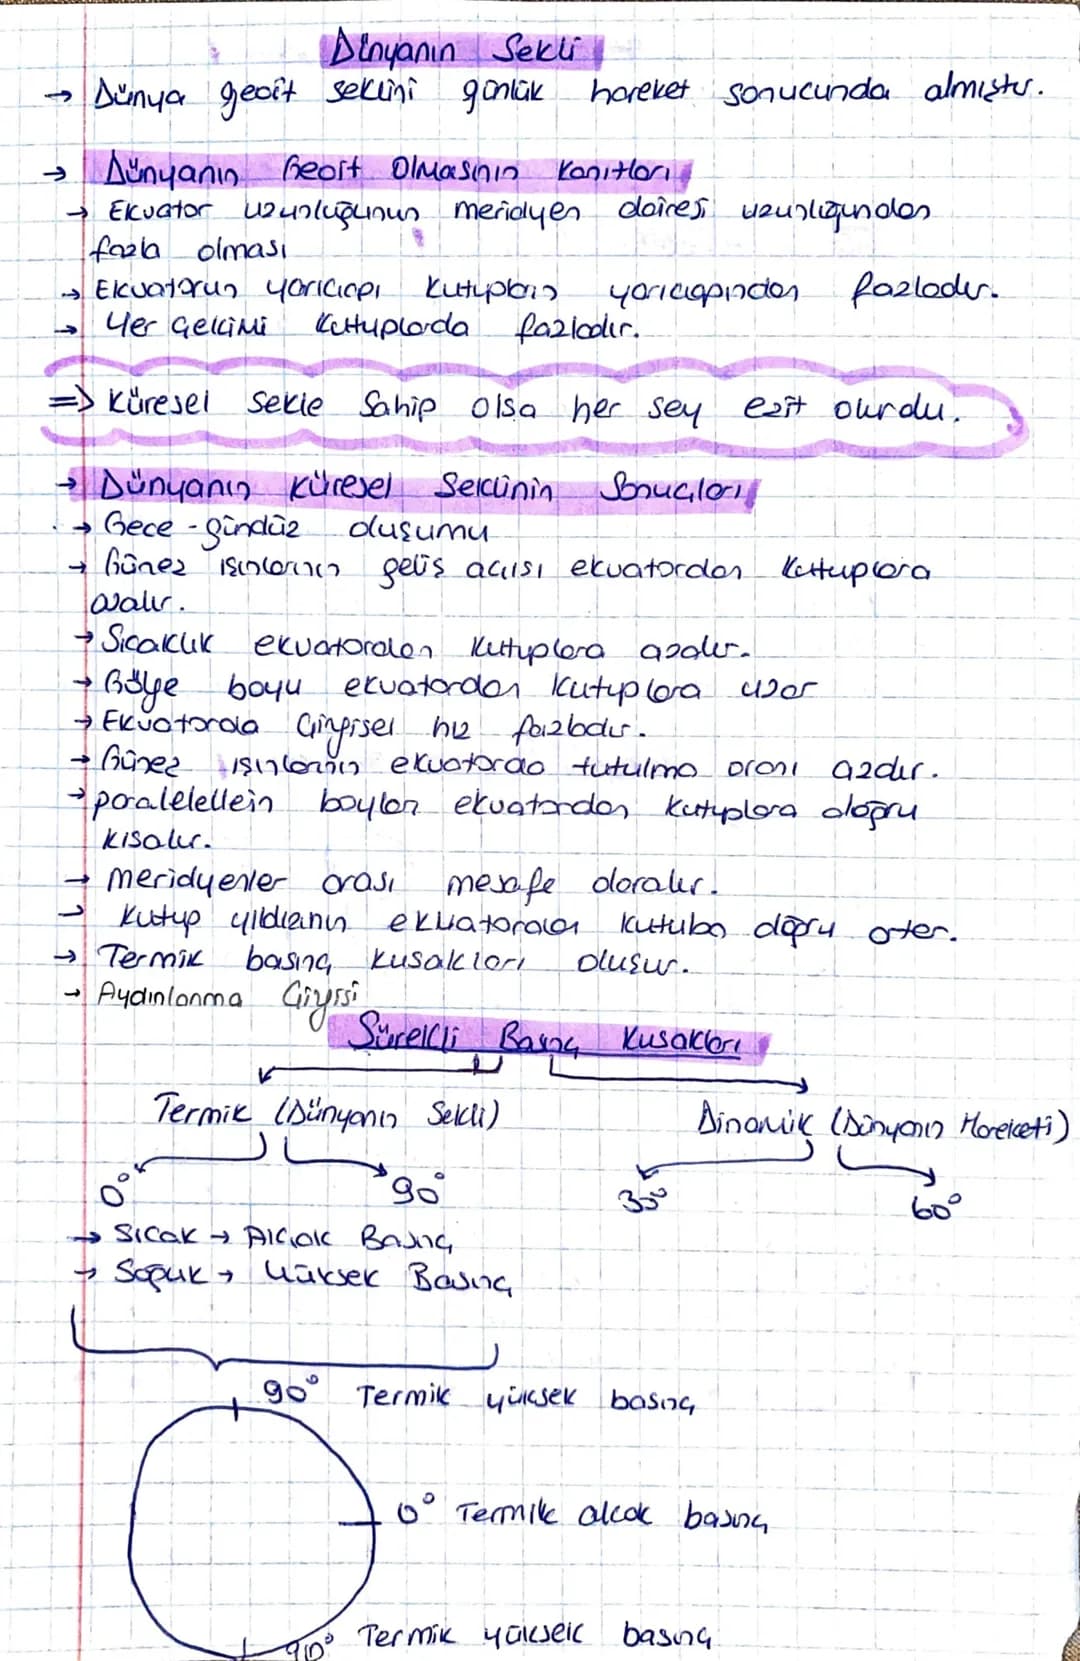 Dünyanın Sekli
→ Dünya geoit seklini günlük hareket sonucunda almıştır.
→ Dünyanın Geoit Olmasının Kanıtları
→ Ekvator uzunluğunun meridyen dairesi uzunluğundan
fazla olması
→ Ekvatorun yarıcapı Kutupların yarıcapından fazladır.
→ Yer Çekimi Kutuplarda fazladır.
=> Küresel Sekle Sahip olsa her sey eşit olurdu.
→ Dünyanın Küresel Seklinin Sonuçları
→ Gece - gündüz oluşumu
→ Güneş ışınlarının geliş açısı ekvatordan Kutuplara
azalır.
→ Sıcaklık ekvatordan Kutuplara azalır.
→ Gölge boyu ekvatordan Kutuplara uzar
→ Ekvatorda Çizgisel hız fazladır.
→ Güneş ışınlarının ekvatorda tutulma oranı azdır.
→ paralelellein boyları ekvatordan Kutuplara doğru
kısalır.
→ meridyenler arası mesafe daralır.
→ Kutup yıldızının ekvatordan Kutuba doğru artar.
→ Termik basınç kusakları oluşur.
→ Aydınlanma Çizgisi
Sürekli Basınç Kusakları
Termik (Dünyanın Sekli) Dinamik (Dünyanın Hareketi)
0° 90° 30° 60°
→ Sıcak → Alçak Basınç
→ Soğuk → Yüksek Basınç
90° Termik yüksek basınç
0° Termik alcak basınç
90° Termik yüksek basınç